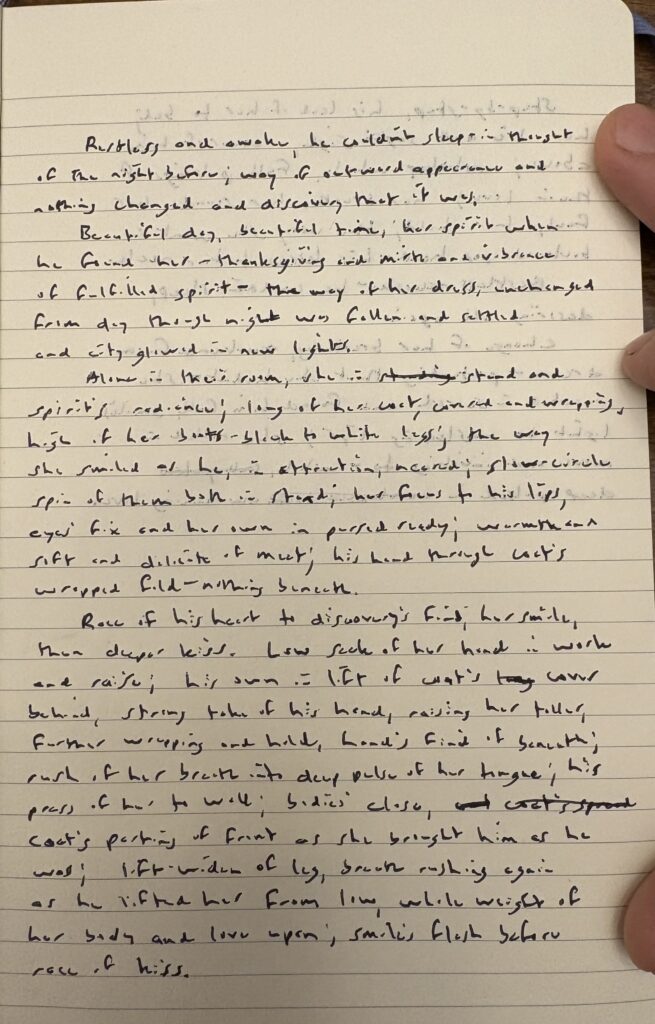 Restless and awake, he couldn't sleep in thought
of the night before; way of outward appearance and
nothing changed and discovery that it was.
Beautiful day, beautiful time, her spirit when
he found her – thanksgiving and mirth and vibrance
of fulfilled spirit – the way of her dress, unchanged
from day though night was fallen and settled
and city glowed in new lights.
Alone in their room, she in standing stand and
spirit's radiance; long of her coat, covered and wrapping,
high of her boots – black to white legs; the way
she smiled as he, in attraction, neared; slow-circle
spin of them both in stand; her focus to his lips,
eyes' fix and her own in pursed ready; warmth and
soft and delicate of meet; his hand through coat's
wrapped fold – nothing beneath.
Race of his heart to discovery's find, her smile,
then deeper kiss. Low seek of her hand in work
and raise; his own in lift of coat's cover
behind, strong take of his hand, raising her taller,
further wrapping and hold, hand's find of beneath;
rush of her breath into deep pulse of her tongue; his
press of her to wall; bodies' close, and coat's spread
coat's parting of front as she brought him as he
was; lift-widen of leg, breath rushing again
as he lifted her from low, while weight of
her body and love upon; smile's flash before
race of kiss.